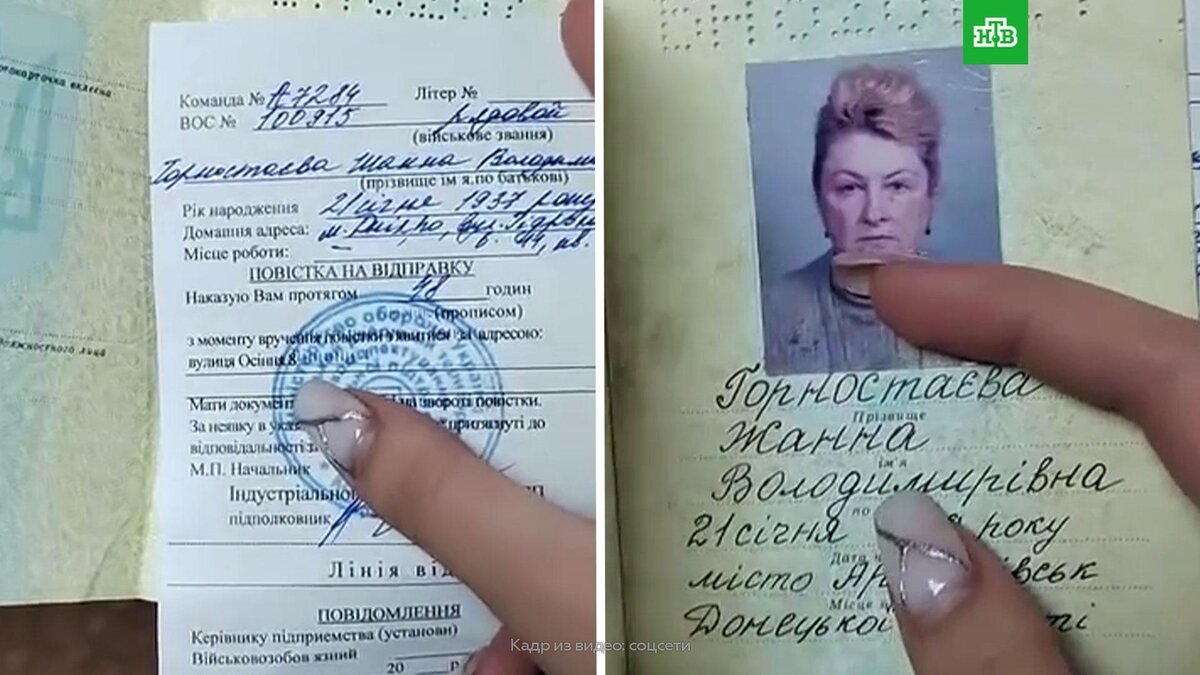 Команда № А7284
Літер №
ВОС № 100915
рядовой
(військове звання)
Горностаєва Жанна Володими
(прізвище ім я.по батькові)
Рік народження 21 січне 1937 року
Домашня адреса: м. Дніпро, вул.
Місце роботи:
ПОВІСТКА НА ВІДПРАВКУ
Наказую Вам протягом 48 годин
(прописом)
з моменту вручення повістки з'явитися за адресою:
вулиця Осіння 8
Мати документ на звороті повістки.
За неявку в притягнуті до
відповідальності з
М.П. Начальник
Індустріальног
підполковник
Лінія від
ПОВІДОМЛЕННЯ
Керівнику підприємства (установи)
Військовозобов язний
20 р
отокарточка вклеєна
должностного лица
НТВ
Горностаєва
Прізвище
Жанна
ім'я
Володимирівна
по
21 січня року
Дата
місто
Місце
Донецької
Кадр из видео: соцсети